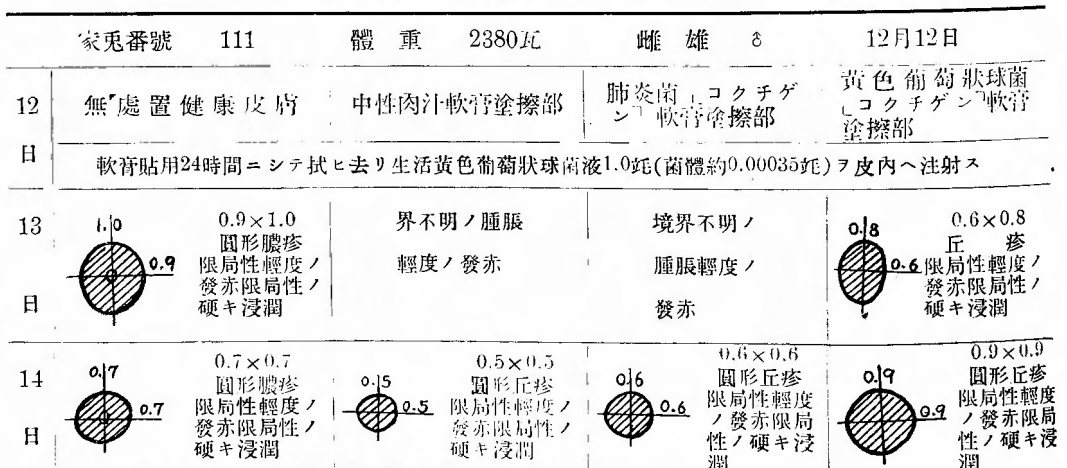 家兎番號 111 體重 2380瓦 雌雄 ♂ 12月12日
12日
無處置健康皮膚
中性肉汁軟膏塗擦部
肺炎菌「コクチゲ
ン」軟膏塗擦部
黄色葡萄狀球菌
「コクチゲン」軟膏
塗擦部
軟膏貼用24時間ニシテ拭ヒ去リ生活黄色葡萄狀球菌液1.0竓(菌體約0.00035竓)ヲ皮内ヘ注射ス
13日
1.0
0.9
0.9×1.0
圓形膿疹
限局性輕度ノ
發赤限局性ノ
硬キ浸潤
界不明ノ腫脹
輕度ノ發赤
境界不明ノ
腫脹輕度ノ
發赤
0.8
0.6
0.6×0.8
丘疹
限局性輕度ノ
發赤限局性ノ
硬キ浸潤
14日
0.7
0.7
0.7×0.7
圓形膿疹
限局性輕度ノ
發赤限局性ノ
硬キ浸潤
0.5
0.5
0.5×0.5
圓形丘疹
限局性輕度ノ
發赤限局性ノ
硬キ浸潤
0.6
0.6
0.6×0.6
圓形丘疹
限局性輕度
ノ發赤限局
性ノ硬キ浸
潤
0.9
0.9
0.9×0.9
圓形丘疹
限局性輕度
ノ發赤限局
性ノ硬キ浸
潤